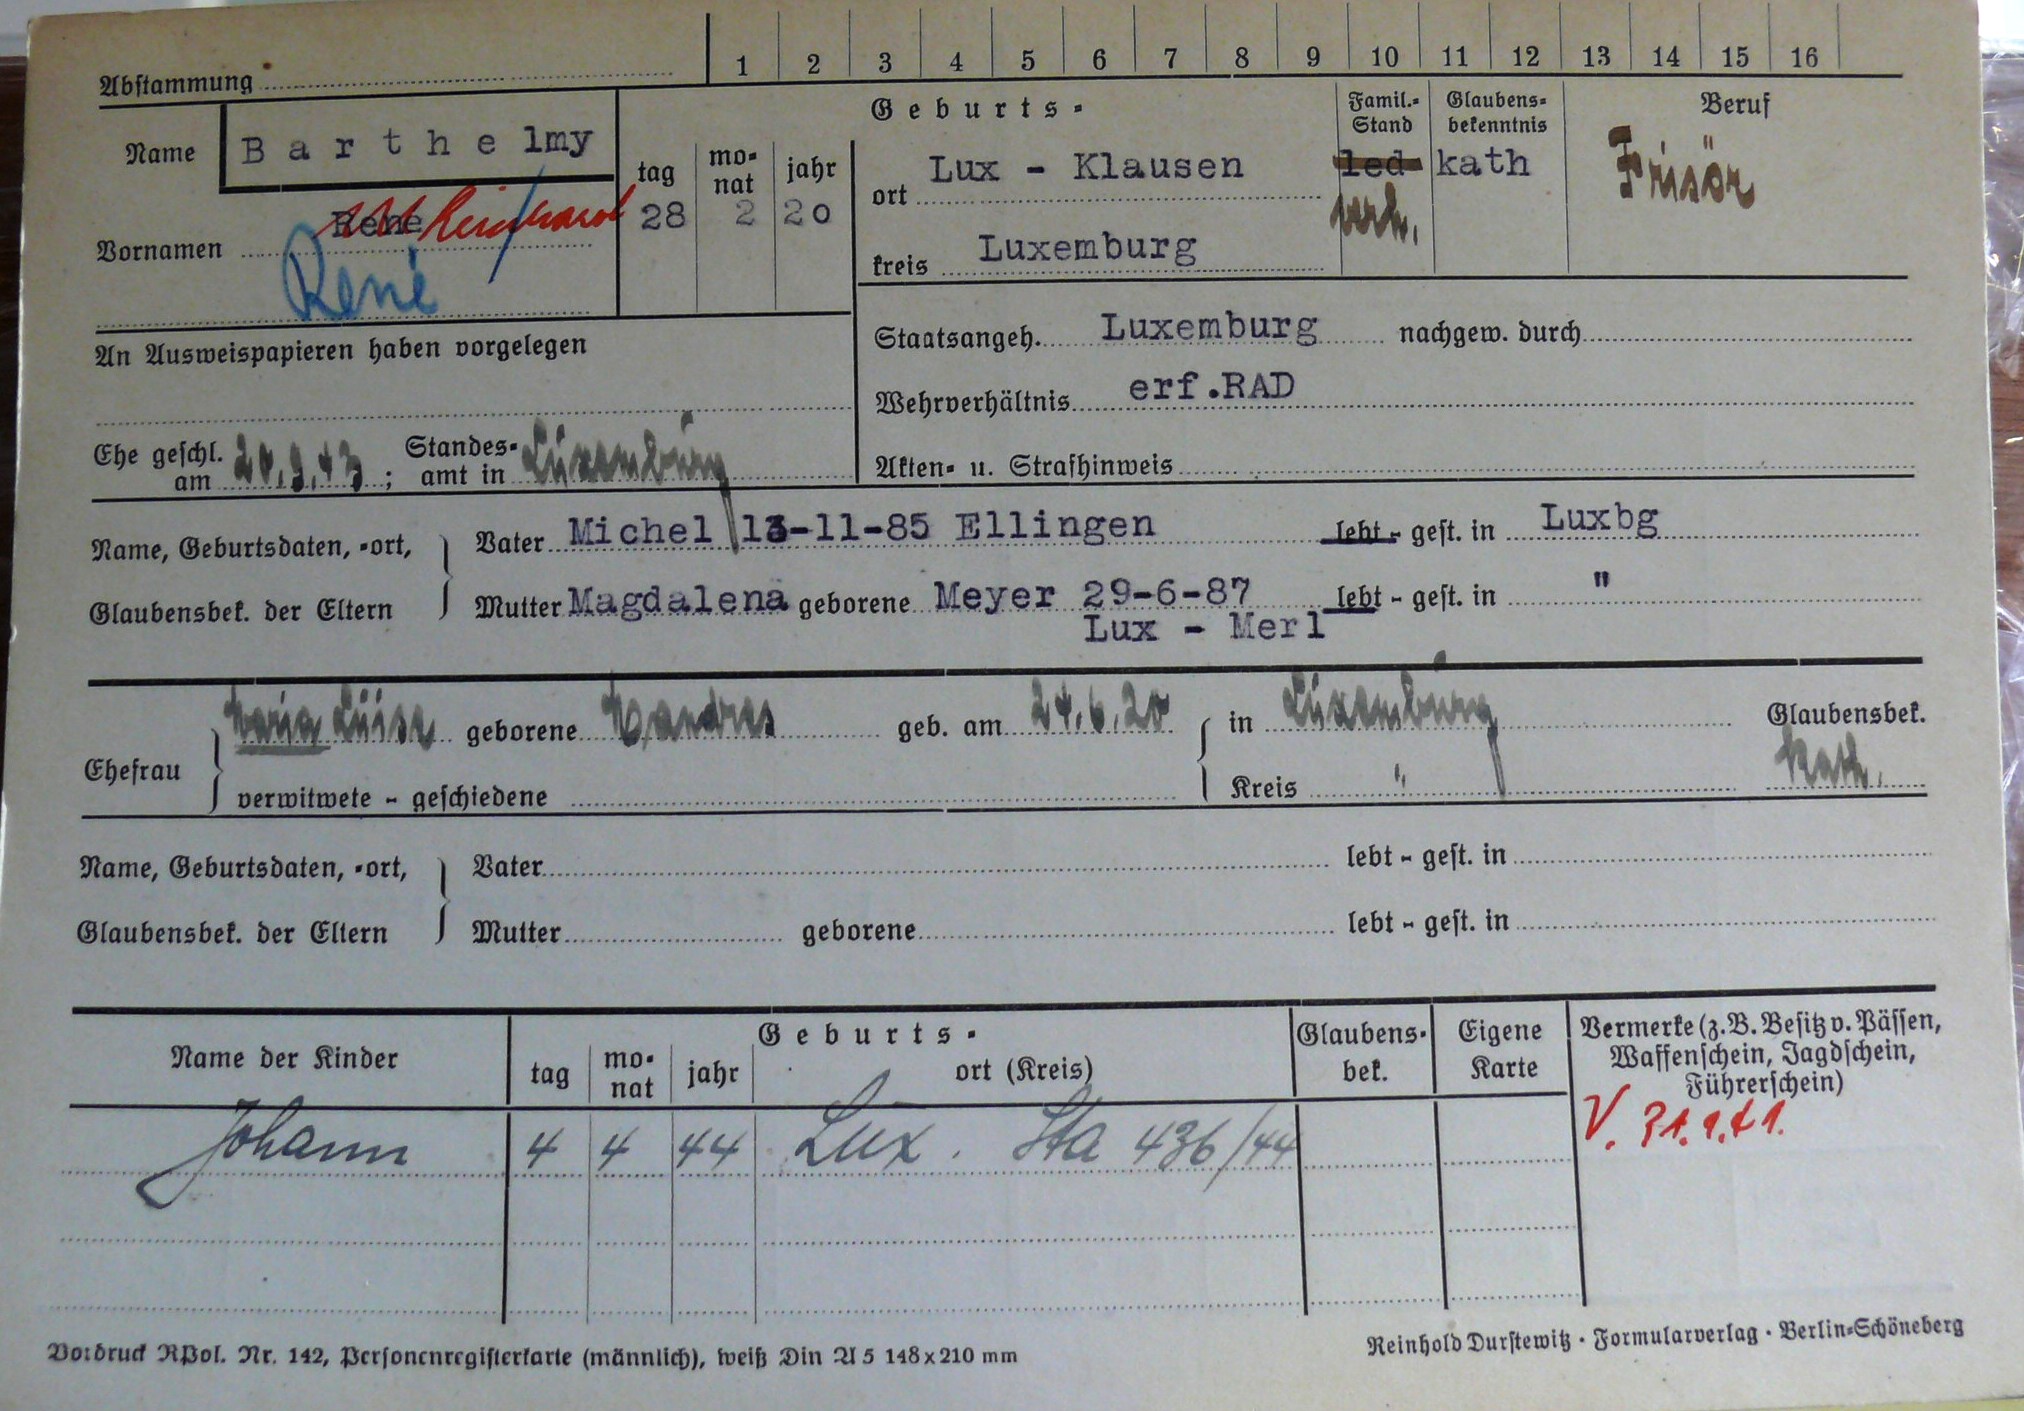 Abstammung 1 2 3 4 5 6 7 8 9 10 11 12 13 14 15 16
Name Barthelmy
Vornamen René Reinhard
René
Geburts-
tag monat jahr
28 2 20
ort Lux - Klausen
kreis Luxemburg
Famil.-Stand
led
verh.
Glaubensbekenntnis
kath
Beruf
Frisör
An Ausweispapieren haben vorgelegen
Staatsangeh. Luxemburg nachgew. durch
Wehrverhältnis erf.RAD
Ehe geschl. am ; Standesamt in Luxemburg
Akten- u. Strafhinweis
Name, Geburtsdaten, -ort,
Glaubensbek. der Eltern
Vater Michel 13-11-85 Ellingen lebt - gest. in Luxbg
Mutter Magdalena geborene Meyer 29-6-87 lebt - gest. in "
Lux - Merl
Ehefrau
Maria Luise geborene geb. am 24.6.20 in Luxemburg Glaubensbek.
verwitwete - geschiedene Kreis " kath.
Name, Geburtsdaten, -ort,
Glaubensbek. der Eltern
Vater lebt - gest. in
Mutter geborene lebt - gest. in
Name der Kinder
Geburts-
tag monat jahr ort (Kreis)
Glaubensbek.
Eigene Karte
Vermerke (z.B. Besitz v. Pässen,
Waffenschein, Jagdschein,
Führerschein)
Johann 4 4 44 Lux. Sta 436/44
V. 31.1.41.
Vordruck RPol. Nr. 142, Personenregisterkarte (männlich), weiß Din A 5 148 x 210 mm
Reinhold Durstewitz · Formularverlag · Berlin-Schöneberg